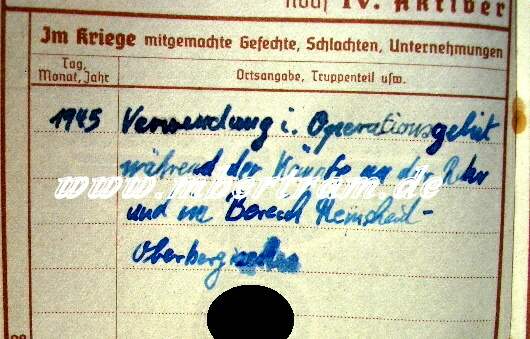 IV. Aktiver
Im Kriege mitgemachte Gefechte, Schlachten, Unternehmungen
Tag, Monat, Jahr
Ortsangabe, Truppenteil usw.
1945 Verwendung i. Operationsgebiet
während der Kämpfe an der Ruhr
und im Bereich Remscheid-
Oberbergischen